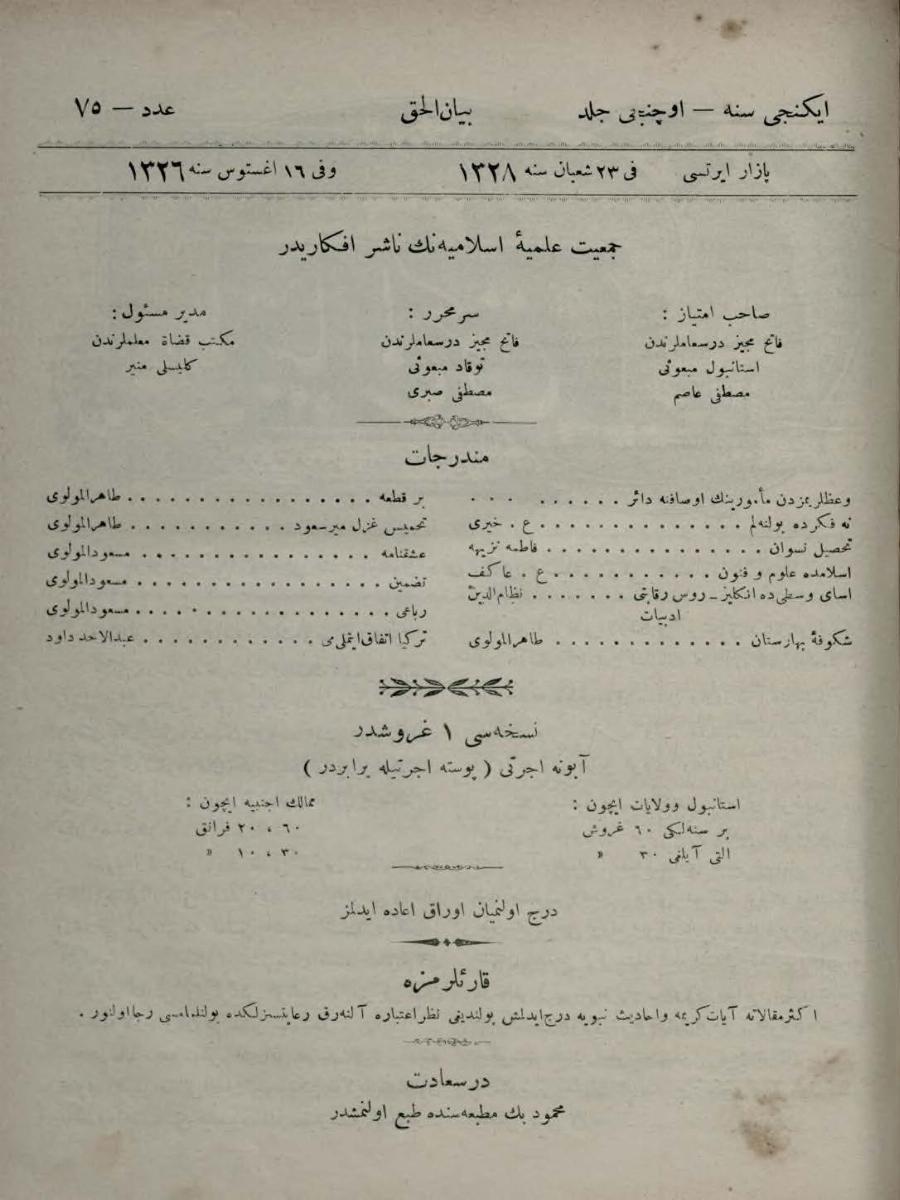 ایکنجی سنه — اوچنجی جلد بیان‌الحق عدد — ۷۵
بازار ایرتسی فی ۲۳ شعبان سنه ۱۳۲۸ وفی ۱۶ اغستوس سنه ۱۳۲۶
جمعیت علمیهٔ اسلامیه‌نك ناشر افكاریدر
صاحب امتیاز :
فاتح مجیز درسعاملرندن
استانبول مبعوثی
مصطفی عاصم
سرمحرر :
فاتح مجیز درسعاملرندن
توقاد مبعوثی
مصطفی صبری
مدیر مسئول :
مكتب قضاة معلملرندن
كلیسلی منیر
مندرجات
وعظلریمزدن مأمورینك اوصافنه دائر . . . . . . . . .
نه فكرده بولنه‌لم . . . . . . . . . . . . . . ع . خیری
تحصیل نسوان . . . . . . . . . . . . . . . فاطمه نزیهه
اسلامده علوم و فنون . . . . . . . . . . . ع . عاكف
اسای وسطی‌ده انكلیز ـ روس رقابتی . . . . . . . نظام‌الدین
ادبیات
شكوفهٔ بهارستان . . . . . . . . . . . . . طاهرالمولوی
بر قطعه . . . . . . . . . . . . . . . . . طاهرالمولوی
تخمیس غزل میرسعود . . . . . . . . . . . طاهرالمولوی
عشقنامه . . . . . . . . . . . . . . . . مسعودالمولوی
تضمین . . . . . . . . . . . . . . . . . مسعودالمولوی
رباعی . . . . . . . . . . . . . . . . . مسعودالمولوی
تركیا اتفاق ایتملی‌می . . . . . . . . . . . . عبدالاحد داود
نسخه‌سی ۱ غروشدر
آبونه اجرتی ( پوسته اجرتیله برابردر )
استانبول وولایات ایچون :
بر سنه‌لكی ۶۰ غروش
التی آیلغی ۳۰ «
ممالك اجنبیه ایچون :
۶۰ ، ۲۰ فرانق
۳۰ ، ۱۰ «
درج اولنمیان اوراق اعاده ایدلمز
قارئلرمزه
اكثر مقالاته آیات كریمه واحادیث نبویه درج ایدلمش بولندیغی نظر اعتباره آلنه‌رق رعایتسزلكده بولنلمامسی رجا اولنور .
درسعادت
محمود بك مطبعه‌سنده طبع اولنمشدر